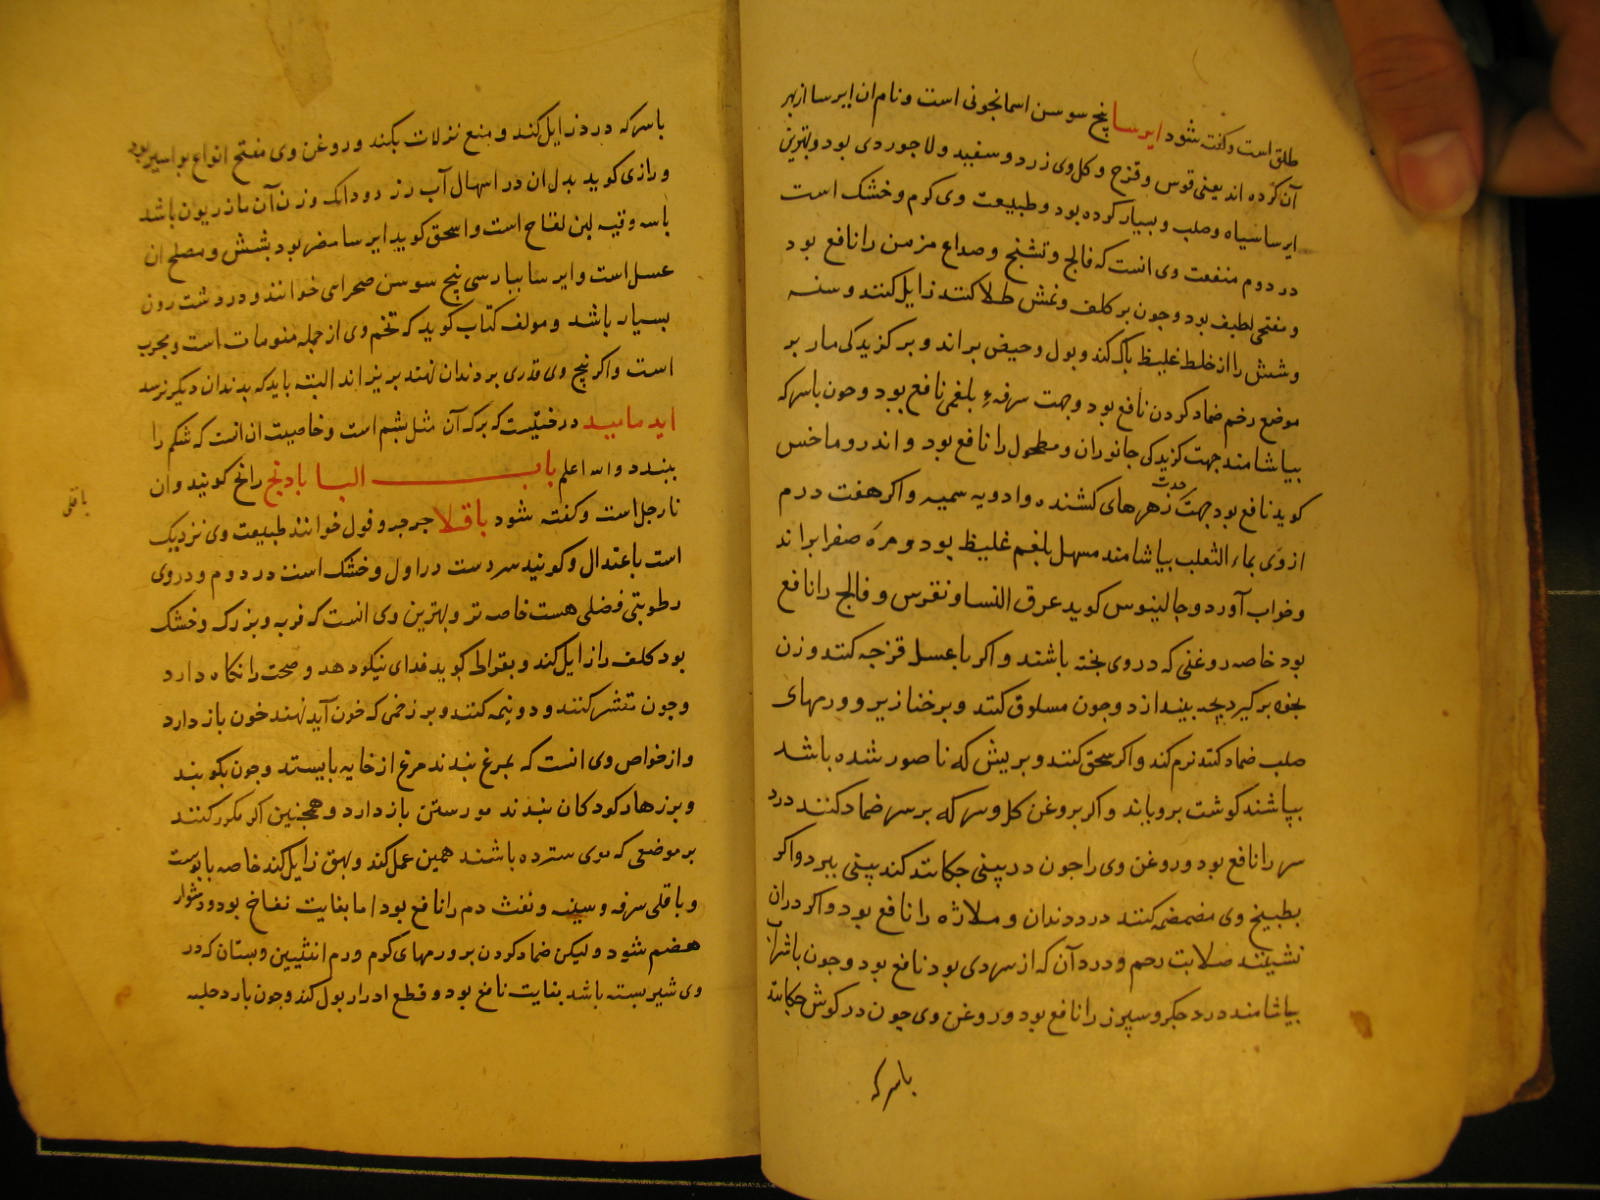 طلق است و گفته شود ایرسا بیخ سوسن اسمانجونی است و نام ان ایرسا از بهر
آن کرده اند یعنی قوس و قزح و کل وی زرد و سفید و لاجوردی بود و بهترین
ایرسا سیاه و صلب و بسیار کرده بود و طبیعت وی کرم و خشک است
در دوم منفعت وی انست که فالج و تشنج و صداع مزمن را نافع بود
و مفتحی لطیف بود و چون بر کلف و نمش طلا کنند زایل کنند و سنه
و شش را از خلط غلیظ پاک کند و بول و حیض براند و بر کزیدکی مار بر
موضع زخم ضماد کردن نافع بود و جهت سرفهٔ بلغمی نافع بود و چون باسرکه
بیاشامند جهت کزیدکی جانوران و مطحول را نافع بود و اندروماخس
کوید نافع بود جهت زهرهای کشنده و ادویه سمیه و اکر هفت درم
از وی بماء الثعلب بیاشامند مسهل بلغم غلیظ بود و مره صفرا براند
و خواب آورد و جالینوس کوید عرق النسا و نقرس و فالج را نافع
بود خاصه روغنی که در وی پخته باشند و اکر با عسل فرزجه کنند و زن
بخود برکیرد بچه بیندازد و چون مسلوق کنند و بر خنازیر و ورمهای
صلب ضماد کنند نرم کند و اکر سحق کنند و بریش که ناصور شده باشد
بپاشند کوشت برویاند و اکر بروغن کل و سرکه بر سر ضماد کنند درد
سر را نافع بود و روغن وی را چون در بینی چکانند کند بینی ببرد و اکر
بطبیخ وی مضمضه کنند درد دندان و ملازه را نافع بود و اکر در ان
نشینند صلابت رحم و درد آن که از سردی بود نافع بود و چون با شراب
بیاشامند درد جکر و سپرز را نافع بود و روغن وی چون در کوش چکانند
باسرکه
باسرکه درد زایل کند و منع نزلات بکند و روغن وی مفتح انواع بواسیر بود
و رازی کوید بدل ان در اسهال آب زرد دو دانک وزن آن مازریون باشد
باسه وقیه لبن لقاح است و اسحق کوید ایرسا مضر بود بشش و مصلح ان
عسل است و ایرسا بپارسی بیخ سوسن صحرایی خوانند و در دشت رون
بسیار باشد و مولف کتاب کوید که تخم وی از جمله منومات است و مجرب
است و اکر بیخ وی قدری بر دندان نهند بریزاند البته باید که بدندان دیکر نرسد
ایدمامید درختیست که برک آن مثل بشم است و خاصیت ان انست که شکم را
ببندد والله اعلم باب البا بادنج رانج کویند و ان
نارجل است و کفته شود باقلا جرجر و فول خوانند طبیعت وی نزدیک
است باعتدال و کویند سردست در اول و خشک است در دوم و در وی
رطوبتی فضلی هست خاصه تر و بهترین وی انست که فربه و بزرک و خشک
بود کلف را زایل کند و بقراط کوید غذای نیکو دهد و صحت را نکاه دارد
و چون مقشر کنند و دو نیمه کنند و بر زخمی که خون آید نهند خون باز دارد
و از خواص وی انست که بمرغ بندند مرغ از خایه بایستد و چون بکوبند
و بر زهار کودکان بندند مو رستن باز دارد و همچنین اکر مکرر کنند
بر موضعی که موی سترده باشند همین عمل کند و بهق زایل کند خاصه با پوست
و باقلی سرفه و سینه و نفث دم را نافع بود اما بغایت نفاخ بود و دشوار
هضم شود و لیکن ضماد کردن بر ورمهای کرم و ورم انثیین و پستان که در
وی شیر بسته باشد بغایت نافع بود و قطع ادرار بول کند و چون بارد حلبه
باقلی